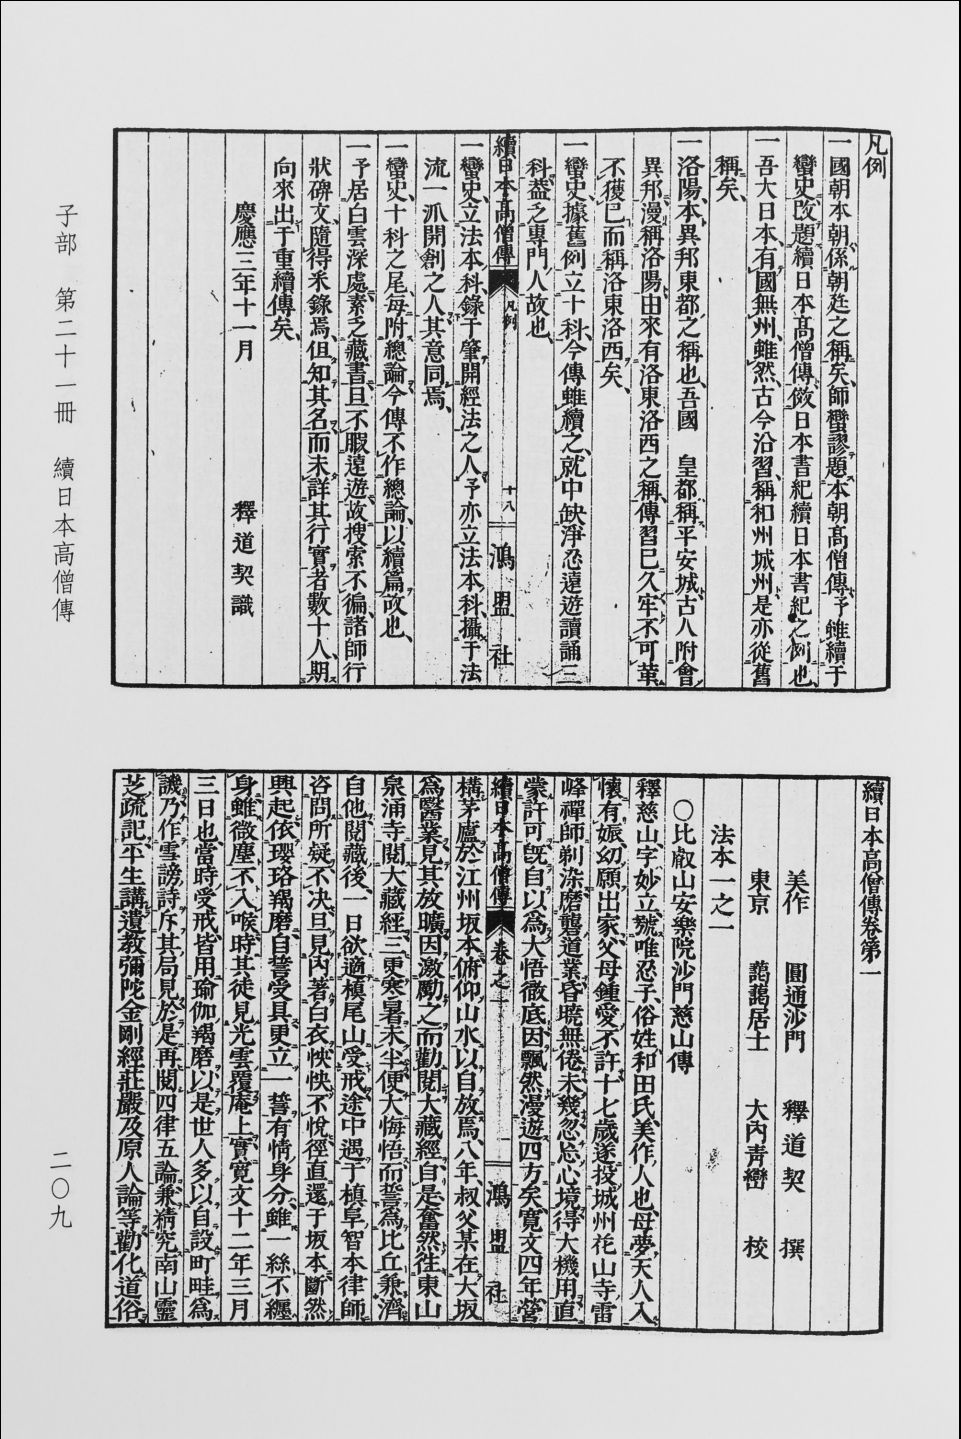 凡例
一國朝本朝係朝廷之稱矣師蠻謬題本朝高僧傳予雖續于
蠻史改題續日本高僧傳倣日本書紀續日本書紀之例也
一吾大日本有國無州雖然古今沿習稱和州城州是亦從舊
稱矣
一洛陽本異邦東都之稱也吾國 皇都稱平安城古人附會
異邦漫稱洛陽由來有洛東洛西之稱傳習已久牢不可革
不獲已而稱洛東洛西矣
一蠻史據舊例立十科今傳雖續之就中缺淨忍遠遊讀誦三
科蓋乏專門人故也
續日本高僧傳 凡例 十八 鴻盟社
一蠻史立法本科錄于肇開經法之人予亦立法本科攝于法
流一派開創之人其意同焉
一蠻史十科之尾每附總論今傳不作總論以續篇故也
一予居白雲深處素乏藏書且不暇遠遊故搜索不徧諸師行
狀碑文隨得釆錄焉但知其名而未詳其行實者數十人期
向來出于重續傳矣
慶應三年十一月 釋道契識
續日本高僧傳卷第一
美作 圓通沙門 釋道契 撰
東京 藹藹居士 大內靑巒 校
法本一之一
○比叡山安樂院沙門慈山傳
釋慈山字妙立號唯忍子俗姓和田氏美作人也母夢天人入
懷有娠幼願出家父母鍾愛不許十七歲遂投城州花山寺雷
峰禪師剃染磨礱道業昏曉無倦未幾忽忘心境得大機用直
蒙許可旣自以爲大悟徹底因飄然漫遊四方矣寬文四年營
續日本高僧傳 卷之一 一 鴻盟社
構茅廬於江州坂本俯仰山水以自放焉八年叔父某在大坂
爲醫業見其放曠因激勵之而勸閱大藏經自是奮然徃東山
泉涌寺閱大藏經三更寒暑未尘便大悔悟而誓爲比丘兼濟
自他閱藏後一日欲適槇尾山受戒途中遇于槙阜智本律師
咨問所疑不决旦見內著白衣怏怏不悅徑直還于坂本斷然
興起依瓔珞羯磨自誓受具更立一誓有情身分雖一絲不纒
身雖微塵不入喉時其徒見光雲覆庵上實寬文十二年三月
三日也當時受戒皆用瑜伽羯磨以是世人多以自設町畦爲
譏乃作雪謗詩斥其局見於是再閱四律五論兼精究南山靈
芝疏記平生講遺教彌陀金剛經莊嚴及原人論等勸化道俗
子部 第二十一冊 續日本高僧傳
二〇九